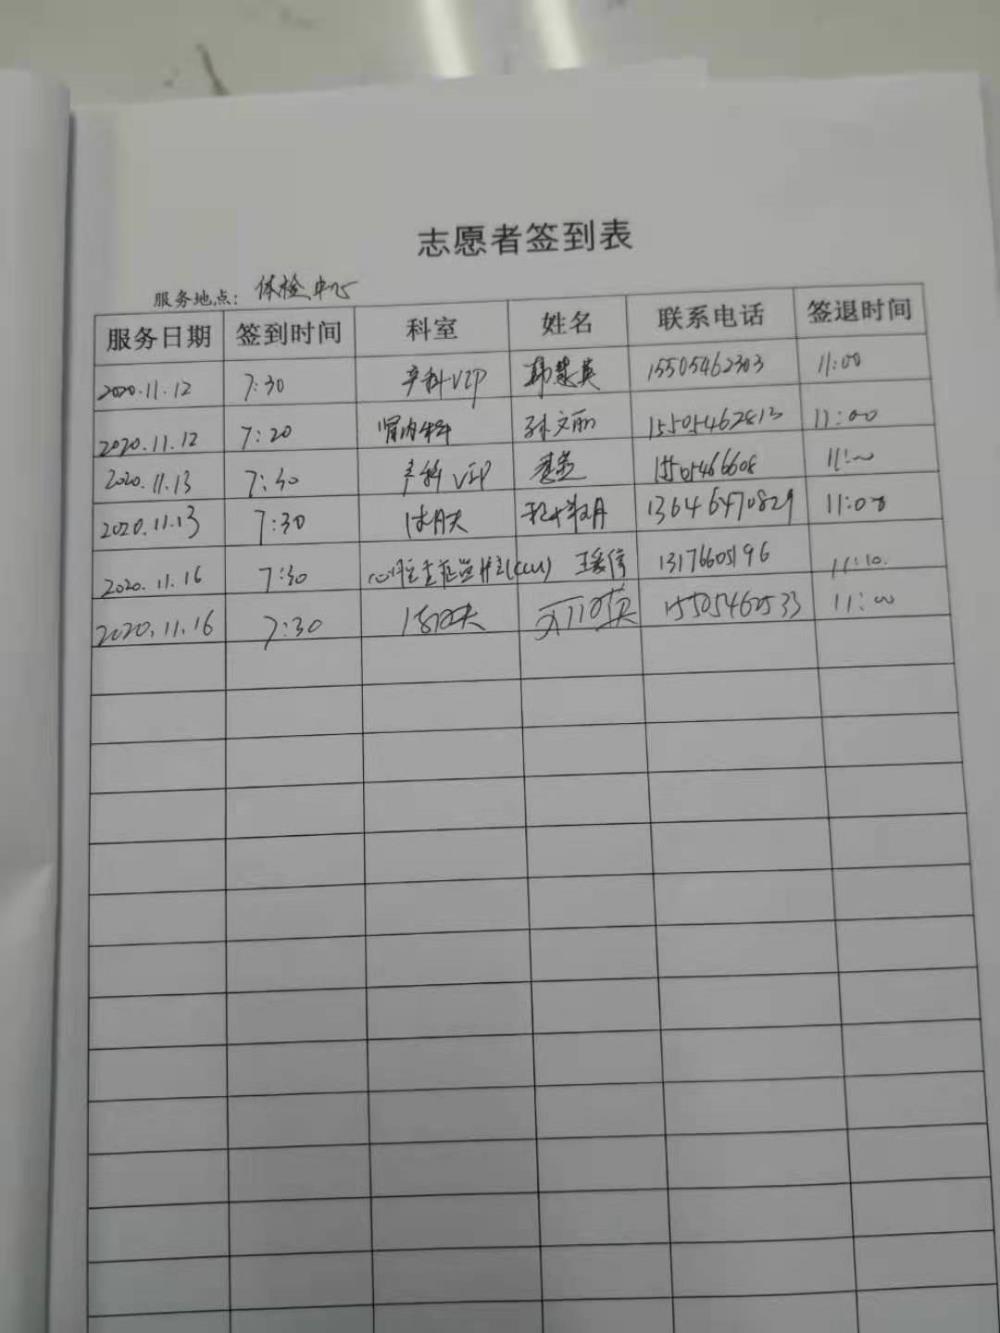 志愿者签到表
服务地点： 体检中心
服务日期 签到时间 科室 姓名 联系电话 签退时间
2020.11.12 7:30 产科VIP 韩慧英 15505462303 11:00
2020.11.12 7:20 肾内科 孙文丽 15505462813 11:00
2020.11.13 7:30 产科VIP 15505466608 11:00
2020.11.13 7:30 13646470829 11:00
2020.11.16 7:30 (CCU) 13176605196 11:10.
2020.11.16 7:30 15505460533 11:00